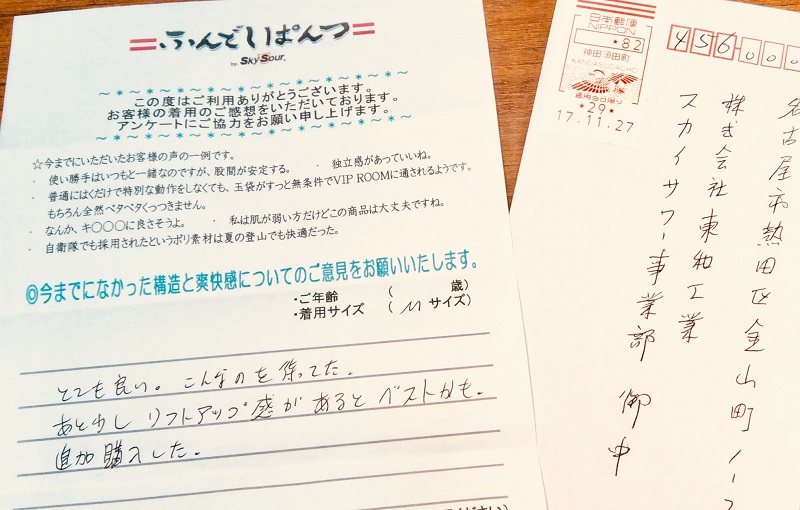 ふんどしぱんつ
by. SkySour.
この度はご利用ありがとうございます。
お客様の着用のご感想をいただいております。
アンケートにご協力をお願い申し上げます。
☆今までにいただいたお客様の声の一例です。
・ 使い勝手はいつもと一緒なのですが、股間が安定する。 ・ 独立感があっていいね。
・ 普通にはくだけで特別な動作をしなくても、玉袋がすっと無条件でVIP ROOMに通されるようです。
もちろん全然ベタベタくっつきません。
・ なんか、キ〇〇〇に良さそうよ。 ・ 私は肌が弱い方だけどこの商品は大丈夫ですね。
・ 自衛隊でも採用されたというポリ素材は夏の登山でも快適だった。
◎今までになかった構造と爽快感についてのご意見をお願いいたします。
・ご年齢 ( 歳)
・着用サイズ ( M サイズ)
とても良い。こんなのを待ってた。
あと少し リフトアップ感があるとベストかも。
追加購入した。
日本郵便
NIPPON
*82
神田須田町
KANDASUDACHO
*29*
17.11.27
456 000
名古屋市熱田区金山町1-
株式会社東和工業
スカイサワー事業部 御中